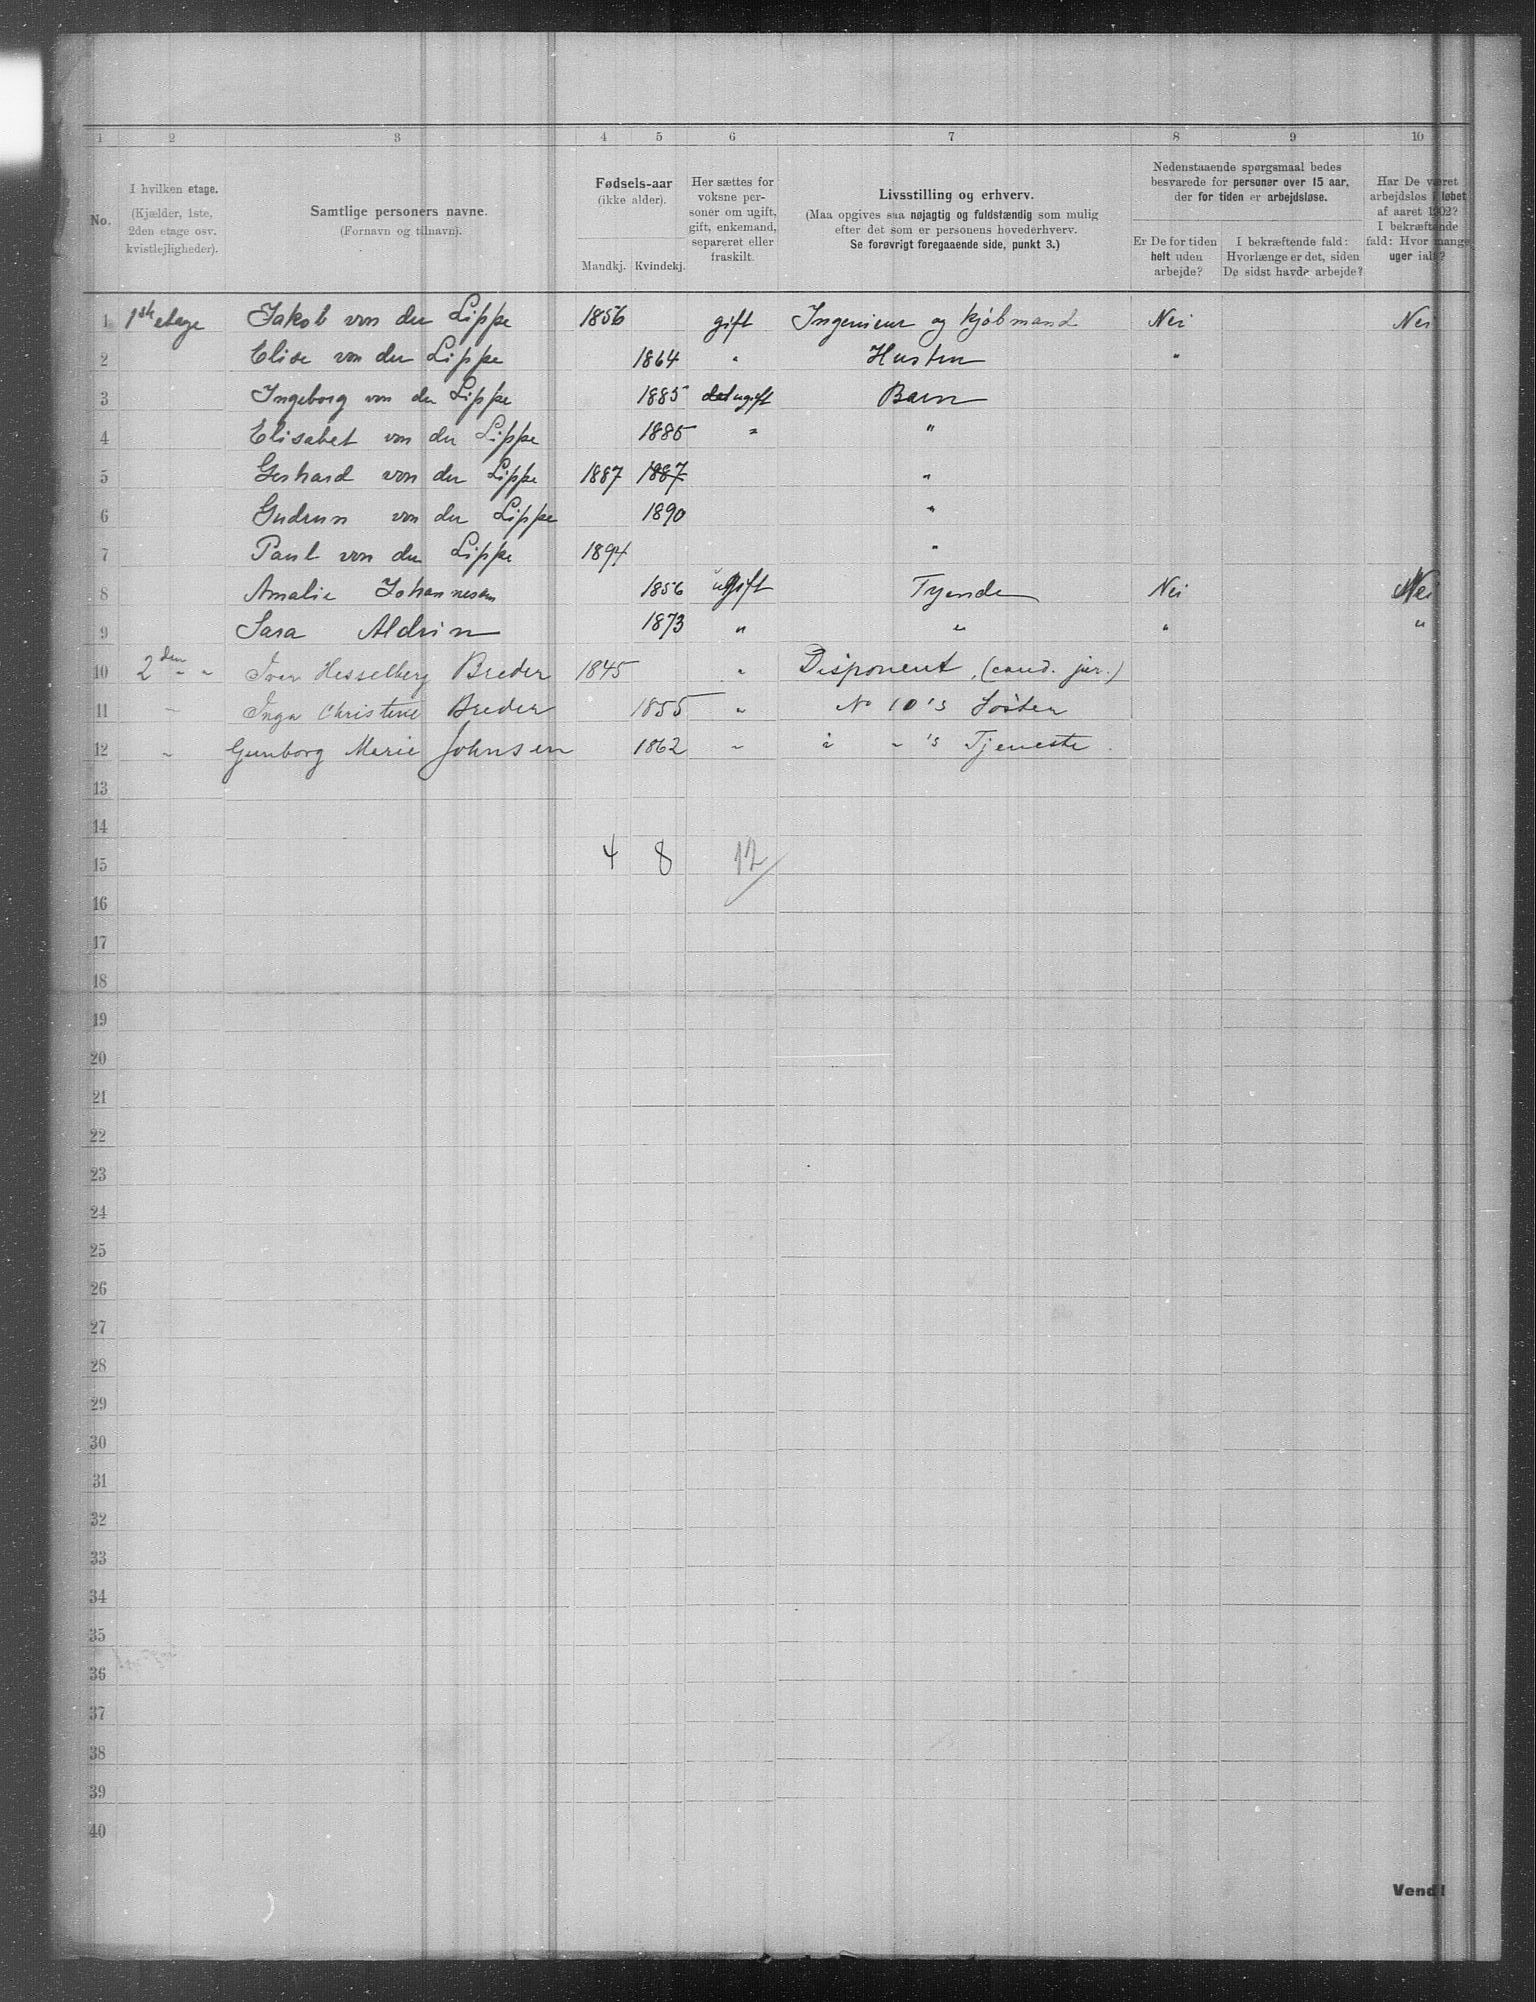 1 2 3 4 5 6 7 8 9 10
No.
I hvilken etage.
(Kjælder, 1ste,
2den etage osv.
kvistlejligheder).
Samtlige personers navne.
(Fornavn og tilnavn).
Fødsels-aar
(ikke alder).
Mandkj. Kvindekj.
Her sættes for
voksne per-
soner om ugift,
gift, enkemand,
separeret eller
fraskilt.
Livsstilling og erhverv.
(Maa opgives saa nøjagtig og fuldstændig som mulig
efter det som er personens hovederhverv.
Se forøvrigt foregaaende side, punkt 3.)
Nedenstaaende spørgsmaal bedes
besvarede for personer over 15 aar,
der for tiden er arbejdsløse.
Er De for tiden
helt uden
arbejde?
I bekræftende fald:
Hvorlænge er det, siden
De sidst havde arbejde?
Har De været
arbejdsløs i løbet
af aaret 1902?
I bekræftende
fald: Hvor mange
uger ialt?
1 1ste etage Jakob von der Lippe 1856 gift Ingenieur og kjøbmand Nei Nei
2 Elise von der Lippe 1864 " Hustru "
3 Ingeborg von der Lippe 1885 ugift Barn
4 Elisabet von der Lippe 1885 " "
5 Gerhard von der Lippe 1887 1887 "
6 Gudrun von der Lippe 1890 "
7 Paul von der Lippe 1894 "
8 Amalie Johannesen 1856 ugift Tyende Nei Nei
9 Sara Aldrin 1873 " " " "
10 2den " " Iver Hesselberg Breder 1845 " Disponent, (cand. jur.)
11 " Inga Christine Breder 1855 " No 10's Søster
12 " Gunborg Marie Johnsen 1862 " " "'s Tjeneste.
13
14
15 4 8 12
16
17
18
19
20
21
22
23
24
25
26
27
28
29
30
31
32
33
34
35
36
37
38
39
40
Vend!